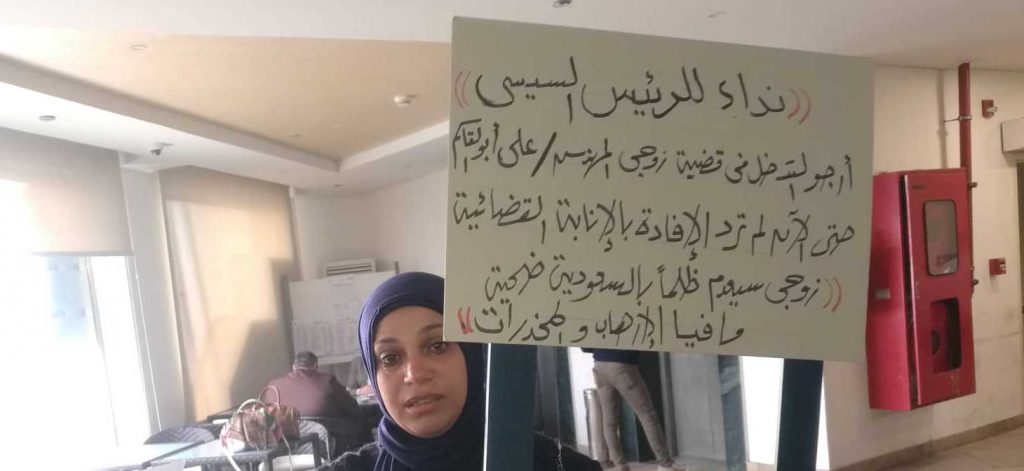 ((نداء للرئيس السيسى))
أرجو التدخل فى قضية زوجى المهندس/على أبو القاسم
حتى الآن لم ترد الإفادة بالإنابة القضائية
((زوجى سيعدم ظلماً بالسعودية ضحية
مافيا الإرهاب والمخدرات))